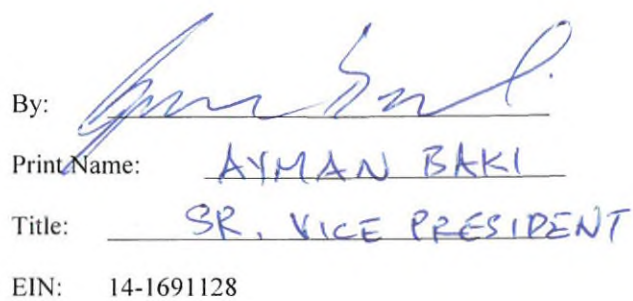 By:
Print Name: AYMAN BAKI
Title: SR. VICE PRESIDENT
EIN: 14-1691128